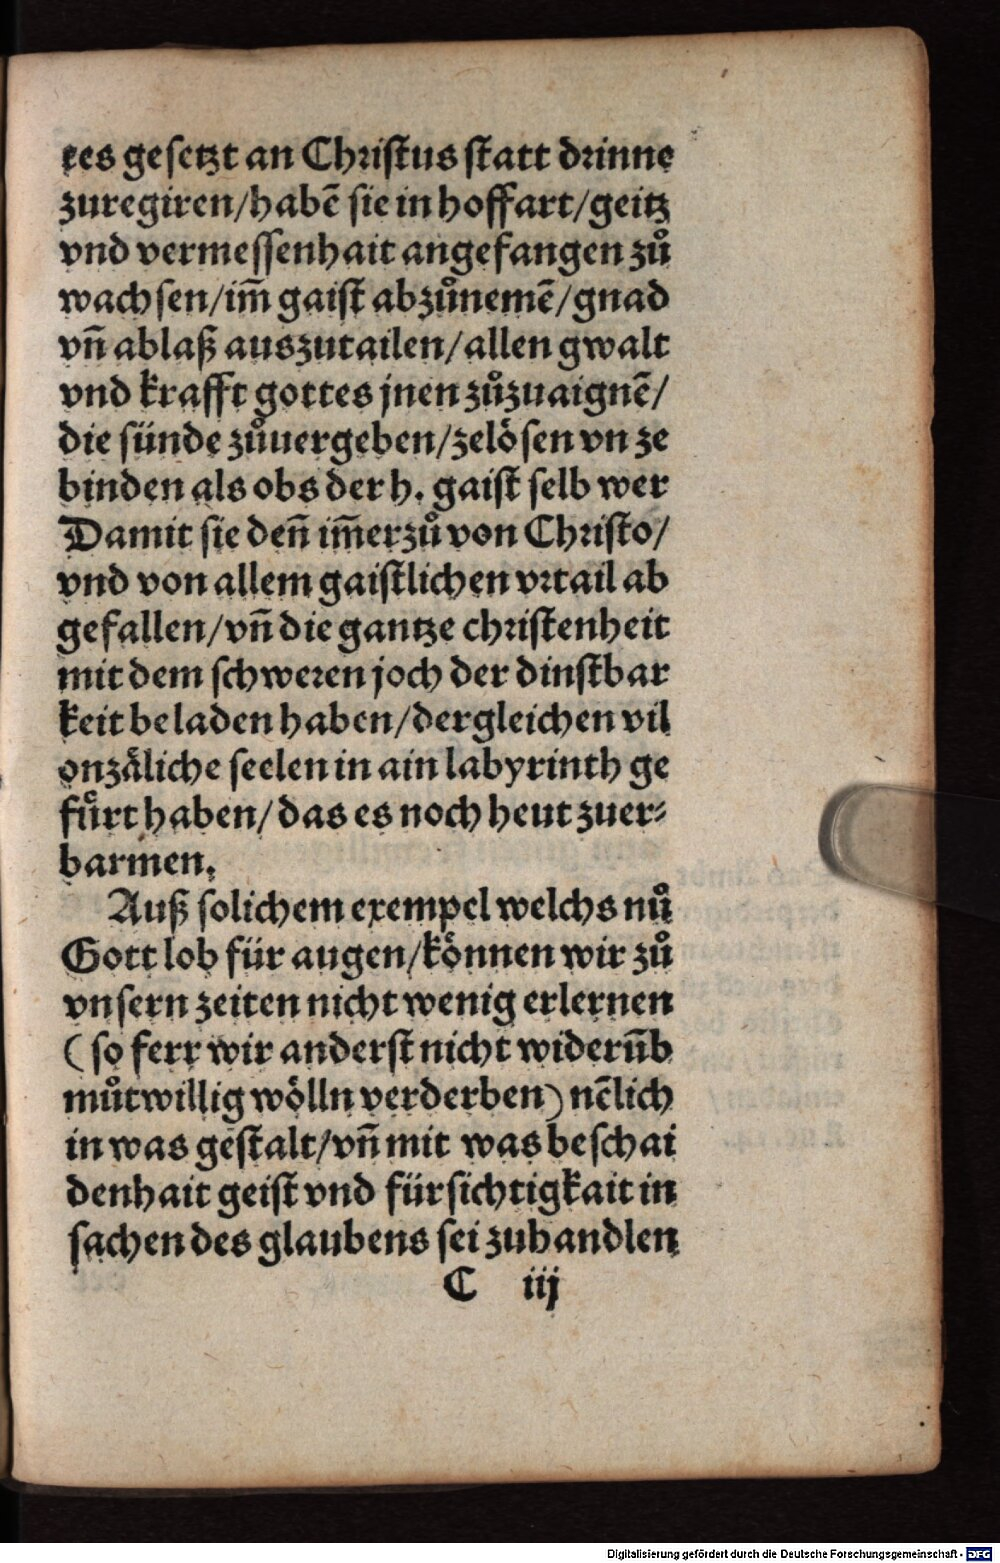 tes gesetzt an Christus statt drinne
zuregiren/habē sie in hoffart/geitz
vnd vermessenhait angefangen zů
wachsen/im̄ gaist abzůnemē/gnad
vn̄ ablaß auszutailen/allen gwalt
vnd krafft gottes jnen zůzuaignē/
die sünde zůuergeben/zelösen vn ze
binden als obs der h. gaist selb wer
Damit sie den̄ im̄erzů von Christo/
vnd von allem gaistlichen vrtail ab
gefallen/vn̄ die gantze christenheit
mit dem schweren joch der dinstbar
keit beladen haben/dergleichen vil
onzäliche seelen in ain labyrinth ge
fůrt haben/das es noch heut zuer⸗
barmen.
Auß solichem exempel welchs nů
Gott lob für augen/können wir zů
vnsern zeiten nicht wenig erlernen
(so ferr wir anderst nicht widerūb
můtwillig wölln verderben) nēlich
in was gestalt/vn̄ mit was beschai
denhait geist vnd fürsichtigkait in
sachen des glaubens sei zuhandlen
C iij
Digitalisierung gefördert durch die Deutsche Forschungsgemeinschaft - DFG